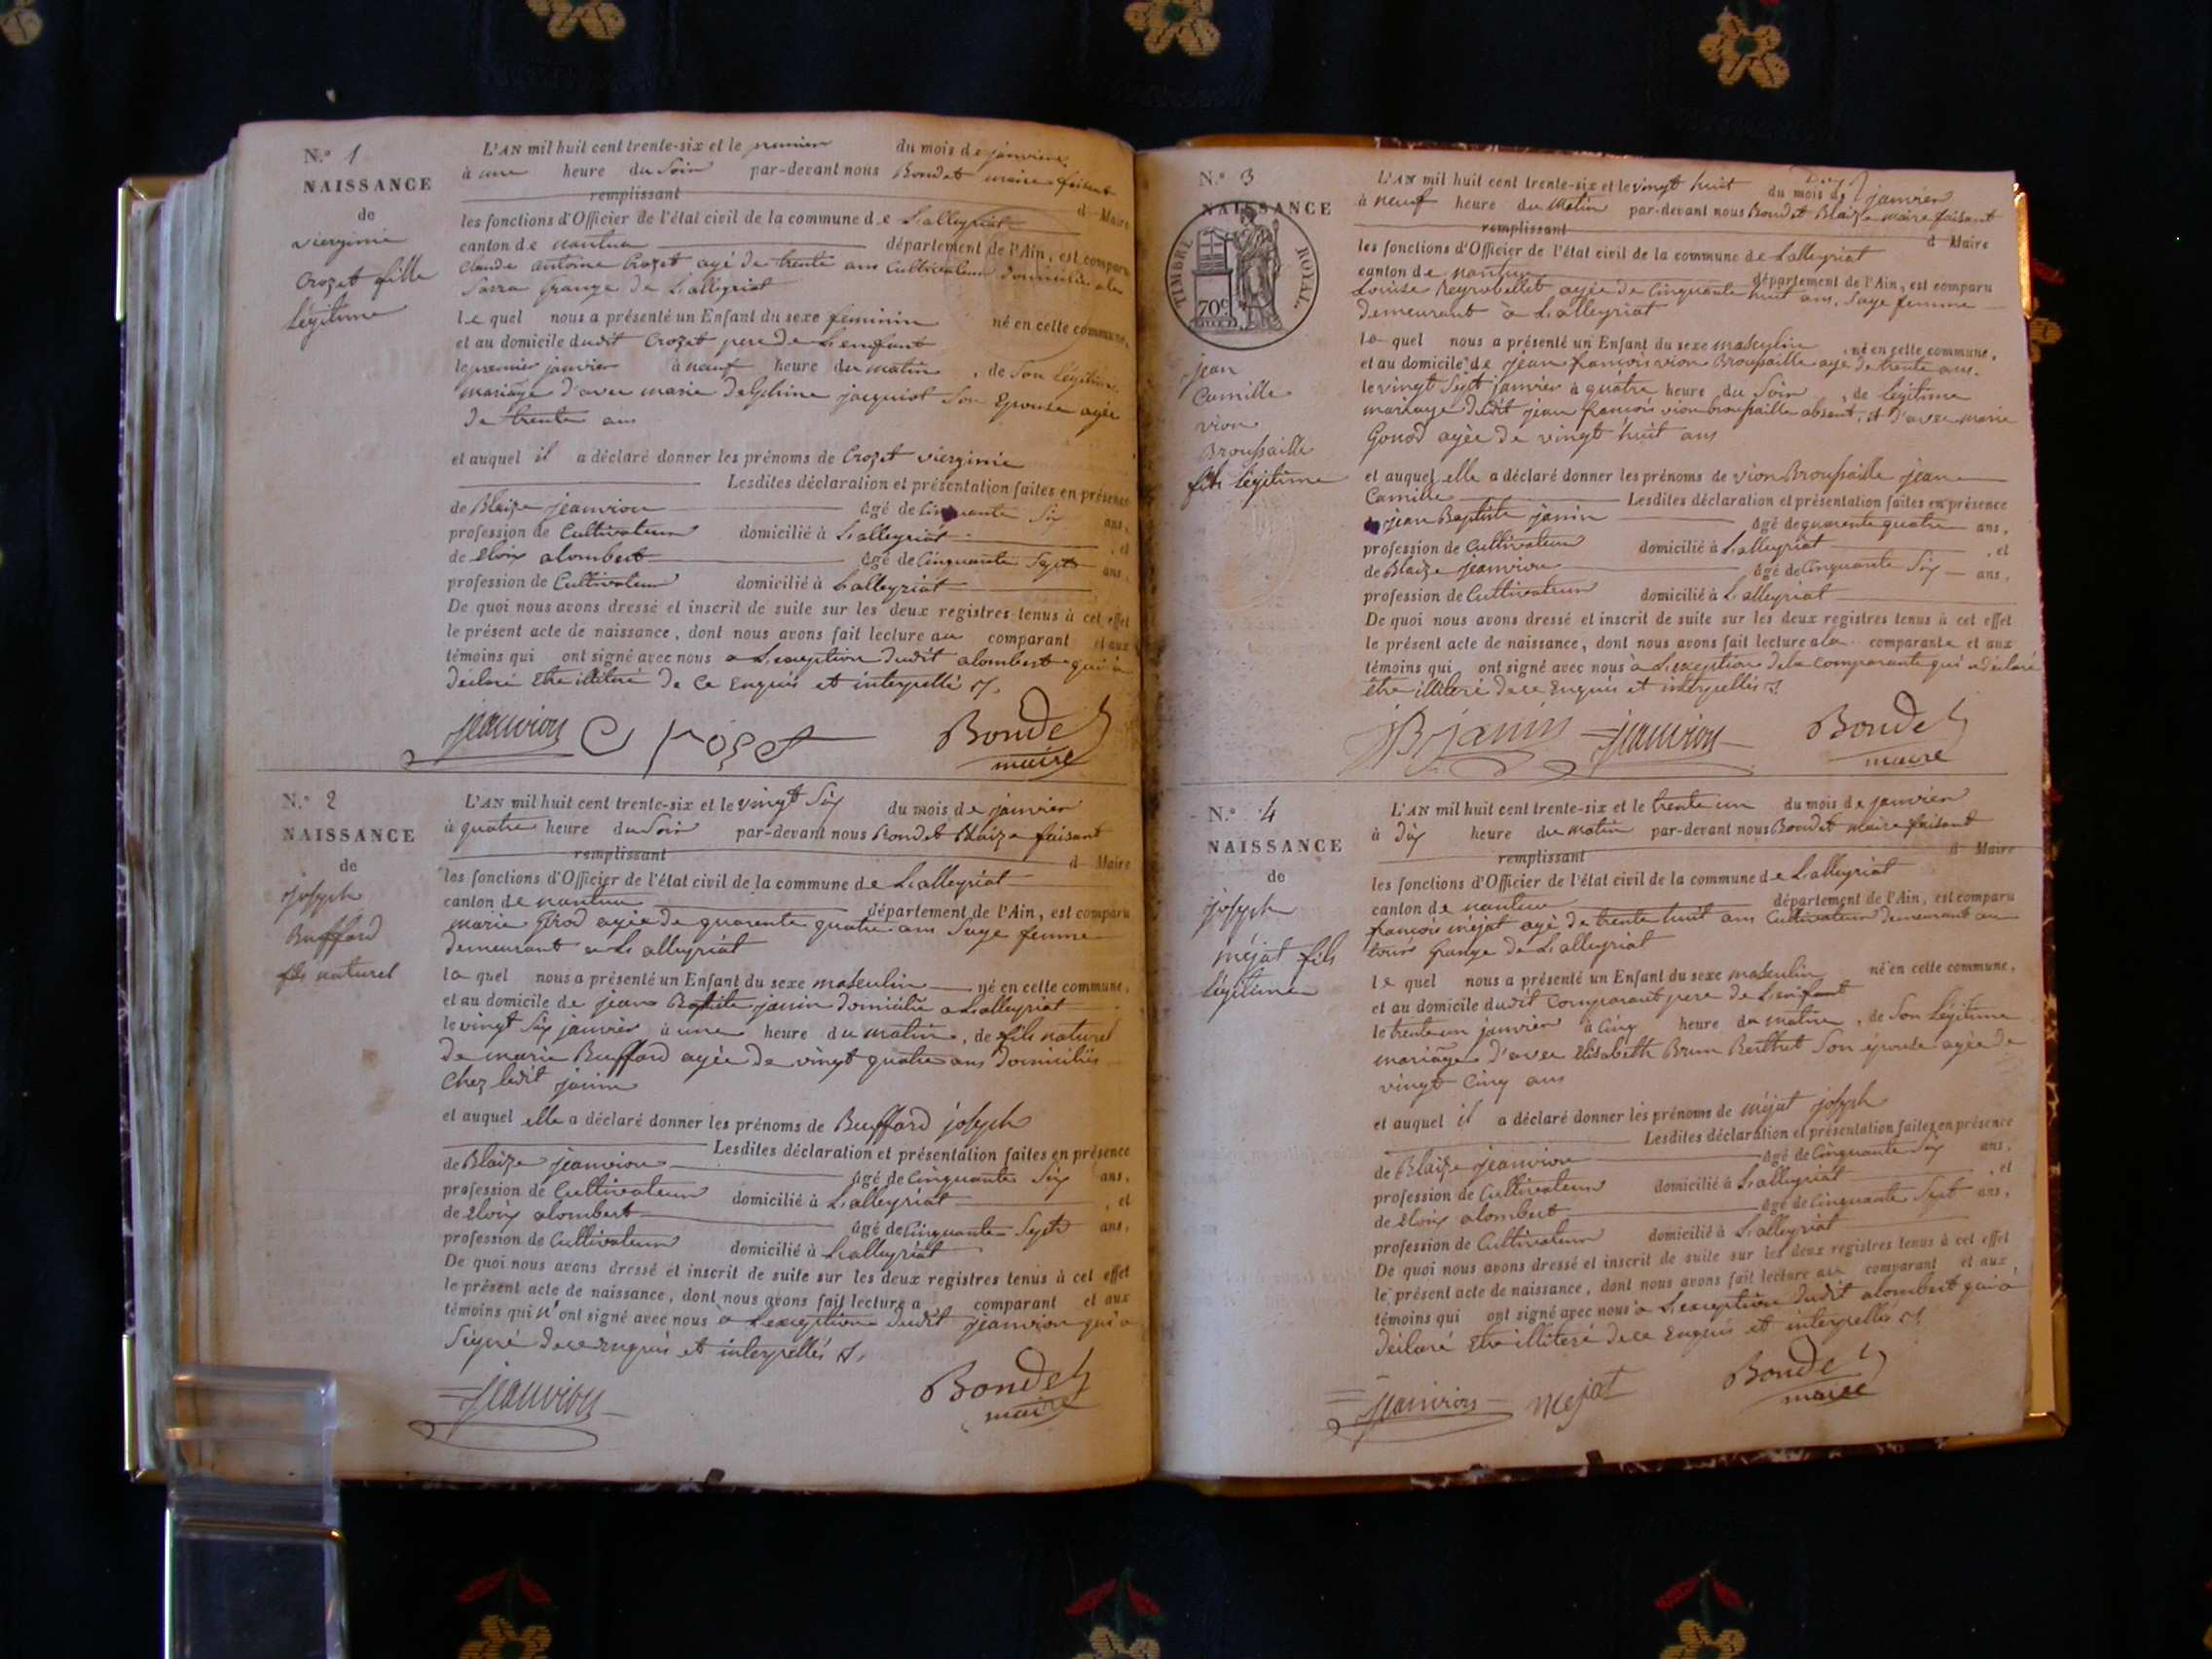 N.° 1
NAISSANCE
de
viergime
Crozet fille
légitime
L'AN mil huit cent trente-six et le premier du mois de janvier
à une heure du Soir par-devant nous Bondet maire faisant
remplissant d Maire
les fonctions d'Officier de l'état civil de la commune de Lalleyriat
canton de nantua département de l'Ain, est comparu
Claude antoine Crozet agé de trente ans Cultivateur domicilié a la
Sarra grange de Lalleyriat
le quel nous a présenté un Enfant du sexe feminin né en cette commune,
et au domicile dudit Crozet pere de L'enfant
le premier janvier à neuf heure du matin, de Son légitime
mariage d'avec marie Delphine jacquiot Son Epouse agée
de trente ans
et auquel il a déclaré donner les prénoms de Crozet vierginie
Lesdites déclaration et présentation faites en présence
de Blaize jeanvion âgé de Cinquante Six ans,
profession de Cultivateur domicilié à Lalleyriat, et
de Eloix alombert âgé de Cinquante Sept ans,
profession de Cultivateur domicilié à Lalleyriat
De quoi nous avons dressé et inscrit de suite sur les deux registres tenus à cet effet
le présent acte de naissance, dont nous avons fait lecture au comparant et aux
témoins qui ont signé avec nous a L'exception dudit alombert qui à
déclaré Etre illiteré de ce Enquis et interpellé
jeanvion Crozet Bondet
maire
N.° 2
NAISSANCE
de
joseph
Buffard
fils naturel
L'AN mil huit cent trente-six et le vingt Six du mois de janvier
à quatre heure du Soir par-devant nous Bondet Blaize faisant
remplissant d Maire
les fonctions d'Officier de l'état civil de la commune de Lalleyriat
canton de nantua département de l'Ain, est comparu
marie Girod agée de quarente quatre ans Sage femme
demeurant a Lalleyriat
la quel nous a présenté un Enfant du sexe masculin né en cette commune,
et au domicile de jean Baptiste janin domicilié a Lalleyriat
le vingt Six janvier à une heure du matin, de fils naturel
de marie Buffard agée de vingt quatre ans domiciliée
Chez ledit janin
et auquel elle a déclaré donner les prénoms de Buffard joseph
Lesdites déclaration et présentation faites en présence
de Blaize jeanvion âgé de Cinquante Six ans,
profession de Cultivateur domicilié à Lalleyriat, et
de Eloix alombert âgé de Cinquante Sept ans,
profession de Cultivateur domicilié à Lalleyriat
De quoi nous avons dressé et inscrit de suite sur les deux registres tenus à cet effet
le présent acte de naissance, dont nous avons fait lecture a comparant et aux
témoins qui n'ont signé avec nous à L'exception dudit jeanvion qui a
Signé de ce enquis et interpellés
jeanvion Bondet
maire
N.° 3
NAISSANCE
TIMBRE ROYAL.
70c
jean
Camille
vion
Broussaille
fils légitime
L'AN mil huit cent trente-six et le vingt huit du mois de janvier
à neuf heure du Matin par-devant nous Bondet Blaize maire faisant
remplissant d Maire
les fonctions d'Officier de l'état civil de la commune de Lalleyriat
canton de nantua département de l'Ain, est comparu
Louise Reyrobellet agée de Cinquante huit ans, Sage femme
demeurant à Lalleyriat
la quel nous a présenté un Enfant du sexe masculin, né en cette commune,
et au domicile de jean françois vion Broussaille agé de trente ans.
le vingt Sept janvier à quatre heure du Soir, de légitime
mariage dudit jean francois vion broussaille absent, et d'avec marie
Gonod agée de vingt huit ans
et auquel elle a déclaré donner les prénoms de vion Broussaille jean
Camille Lesdites déclaration et présentation faites en présence
de jean Baptiste janin âgé de quarente quatre ans,
profession de Cultivateur domicilié à Lalleyriat, et
de Blaize jeanvion âgé de Cinquante Six ans,
profession de Cultivateur domicilié à Lalleyriat
De quoi nous avons dressé et inscrit de suite sur les deux registres tenus à cet effet
le présent acte de naissance, dont nous avons fait lecture a la comparante et aux
témoins qui ont signé avec nous à L'exception de la Comparante qui a déclaré
être illiteré de ce Enquis et interpellés
JB janin jeanvion Bondet
maire
N.° 4
NAISSANCE
de
joseph
méjat fils
légitime
L'AN mil huit cent trente-six et le trente un du mois de janvier
à dix heure du matin par-devant nous Bondet maire faisant
remplissant d Maire
les fonctions d'Officier de l'état civil de la commune de Lalleyriat
canton de nantua département de l'Ain, est comparu
francois méjat agé de trente huit ans Cultivateur demeurant au
grange de Lalleyriat
le quel nous a présenté un Enfant du sexe masculin né en cette commune,
et au domicile dudit Comparant pere de L'enfant
le trente un janvier à Cinq heure du matin, de Son légitime
mariage d'avec Elisabeth Brun Berthet Son épouse agée de
vingt Cinq ans
et auquel il a déclaré donner les prénoms de méjat joseph
Lesdites déclaration et présentation faites en présence
de Blaize jeanvion âgé de Cinquante Six ans,
profession de Cultivateur domicilié à Lalleyriat, et
de Eloix alombert âgé de Cinquante Sept ans,
profession de Cultivateur domicilié à Lalleyriat
De quoi nous avons dressé et inscrit de suite sur les deux registres tenus à cet effet
le présent acte de naissance, dont nous avons fait lecture au comparant et aux
témoins qui ont signé avec nous a L'exception dudit alombert qui a
déclaré Etre illiteré de ce Enquis et interpellés
jeanvion mejat Bondet
maire